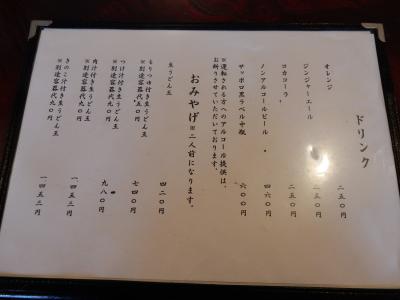 ドリンク
オレンジ 二五〇円
ジンジャーエール 二五〇円
コカコーラ 二五〇円
ノンアルコールビール 四六〇円
サッポロ黒ラベル中瓶 六〇〇円
※運転される方へのアルコール提供は、
お断りさせていただいております。
おみやげ ※二人前になります。
生うどん玉 四二〇円
もりつゆ付き生うどん玉 七四〇円
※別途容器代五〇円
つけ汁付き生うどん玉 九八〇円
※別途容器代九〇円
肉汁付き生うどん玉 一四五三円
※別途容器代九〇円
きのこ汁付き生うどん玉 一四五三円
※別途容器代九〇円